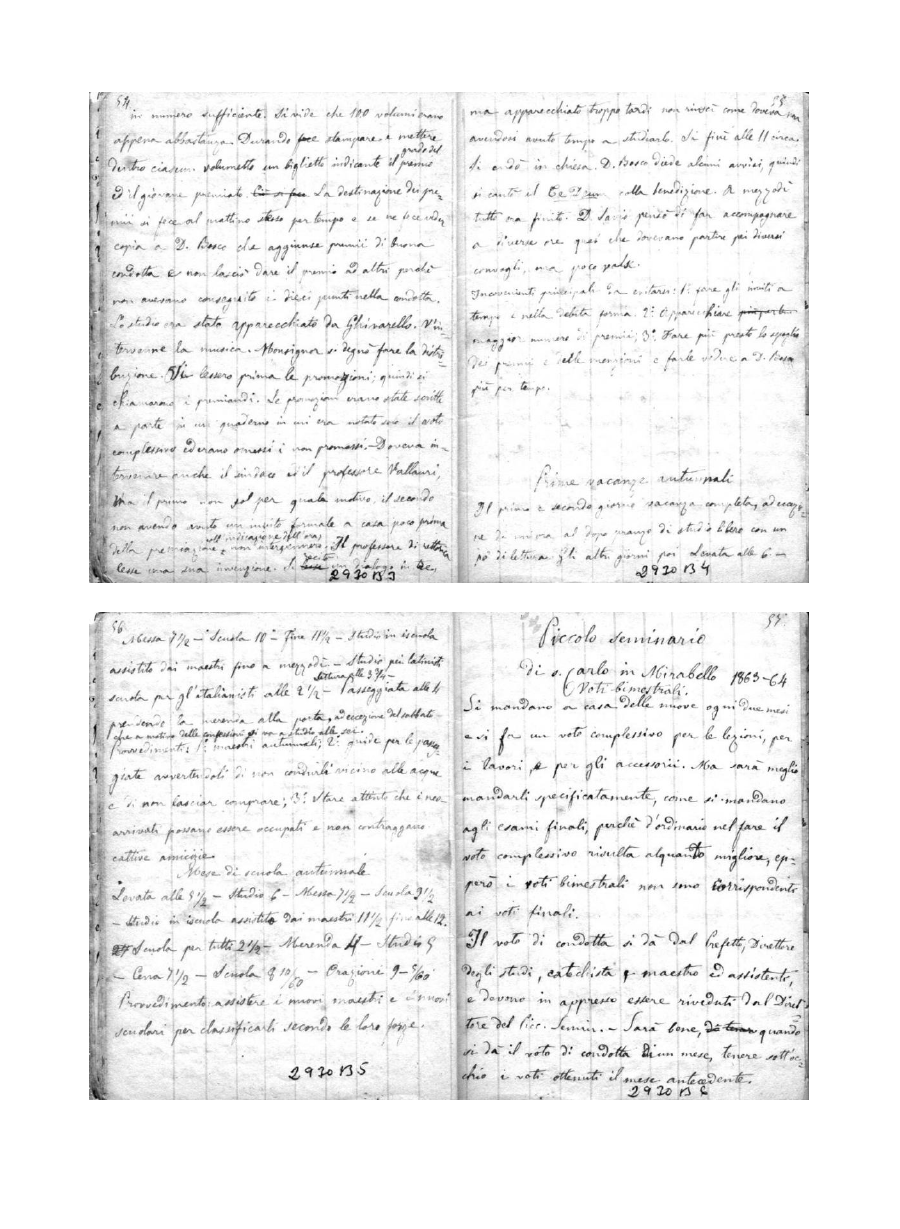 54.
in numero sufficiente. Si vide che 100 volumi erano
appena abbastanza. Durando fece stampare e mettere
dentro ciascun volumetto un biglietto indicante il grado del premio
ed il giovane premiato. La destinazione dei pre-
mii si fece al mattino stesso per tempo e se ne fece veder
copia a D. Bosco che aggiunse premii di buona
condotta e non lasciò dare il premio ad altri perchè
non avevano conseguito i dieci punti nella condotta.
Lo studio era stato apparecchiato da Ghivarello. V'in-
tervenne la musica. Monsignor si degnò fare la distri-
buzione. Si lessero prima le promozioni; quindi si
chiamarono i premiandi. Le promozioni erano state scritte
a parte in un quaderno in cui era notato solo il voto
complessivo ed erano omessi i non promossi. - Doveva in-
tervenire anche il sindaco ed il professore Vallauri,
ma il primo non sol per quale motivo, il secondo
non avendo avuto un invito formale a casa poco prima
della premiazione coll'indicazione dell'ora, non intervennero. Il professore di rettorica
lesse una sua invenzione. Si recitò un dialogo in
2930 B3
55.
ma apparecchiato troppo tardi non riuscì come doveva non
avendosi avuto tempo a studiarlo. Si finì alle 11 circa.
Si andò in chiesa. D. Bosco diede alcuni avvisi, quindi
si cantò il Te Deum colla benedizione. A mezzodì
tutto era finito. D. Savio pensò di far accompagnare
a diverse ore quei che dovevano partire pei diversi
convogli, ma poco valse.
Inconvenienti principali da evitarsi: 1º. fare gli inviti a
tempo e nella debita forma. 2º. Apparecchiare
maggior numero di premii; 3º. Fare più presto lo spoglio
dei premii e delle menzioni e farle vedere a D. Bosco
più per tempo.
Prime vacanze autunnali
Il primo e secondo giorno vacanza completa, ad eccezio-
ne di un'ora al dopo pranzo di studio libero con un
po' di lettura. Gli altri giorni poi Levata alle 6 -
2930 B4
56
Messa 7 1/2 - Scuola 10 - Fine 11 1/2 - Studio in iscuola
assistito dai maestri fino a mezzodì - Studio pei latinisti
scuola per gl'italianisti alle 2 1/2 - lettura alle 3 3/4 - Passeggiata alle 4
prendendo la merenda alla porta, ad eccezione del sabbato
che a motivo delle confessioni si va a studio alle sei.
Provvedimenti: 1º. maestri autunnali; 2º. guide per le passeg-
giate avvertendoli di non condurli vicino alle acque
e di non lasciar comprare; 3º. Stare attento che i neo
arrivati possano essere occupati e non contraggano
cattive amicizie.
Mese di scuola autunnale
Levata alle 5 1/2 - Studio 6 - Messa 7 1/2 - Scuola 9 1/2
- Studio in iscuola assistito dai maestri 11 1/2 fino alle 12.
Scuola per tutti 2 1/2 - Merenda 4 - Studio 5
- Cena 7 1/2 - Scuola 8 10/60 - Orazioni 9 - 5/60
Provvedimento: assistere i nuovi maestri e i nuovi
scolari per classificarli secondo le loro forze.
2930 B5
57.
Piccolo seminario
di s. Carlo in Mirabello 1863-64
(Voti bimestrali.
Si mandano a casa delle nuove ogni due mesi
e vi fa un voto complessivo per le lezioni, per
i lavori, e per gli accessorii. Ma sarà meglio
mandarli specificatamente, come si mandano
agli esami finali, perchè d'ordinario nel fare il
voto complessivo risulta alquanto migliore, ep-
però i voti bimestrali non sono corrispondenti
ai voti finali.
Il voto di condotta si dà dal Prefetto, Direttore
degli studi, catechista, maestro ed assistente,
e devono in appresso essere riveduti dal Diret-
tore del Picc. Semin. - Sarà bene, quando
si dà il voto di condotta di un mese, tenere sott'oc-
chio i voti ottenuti il mese antecedente.
2930 B6